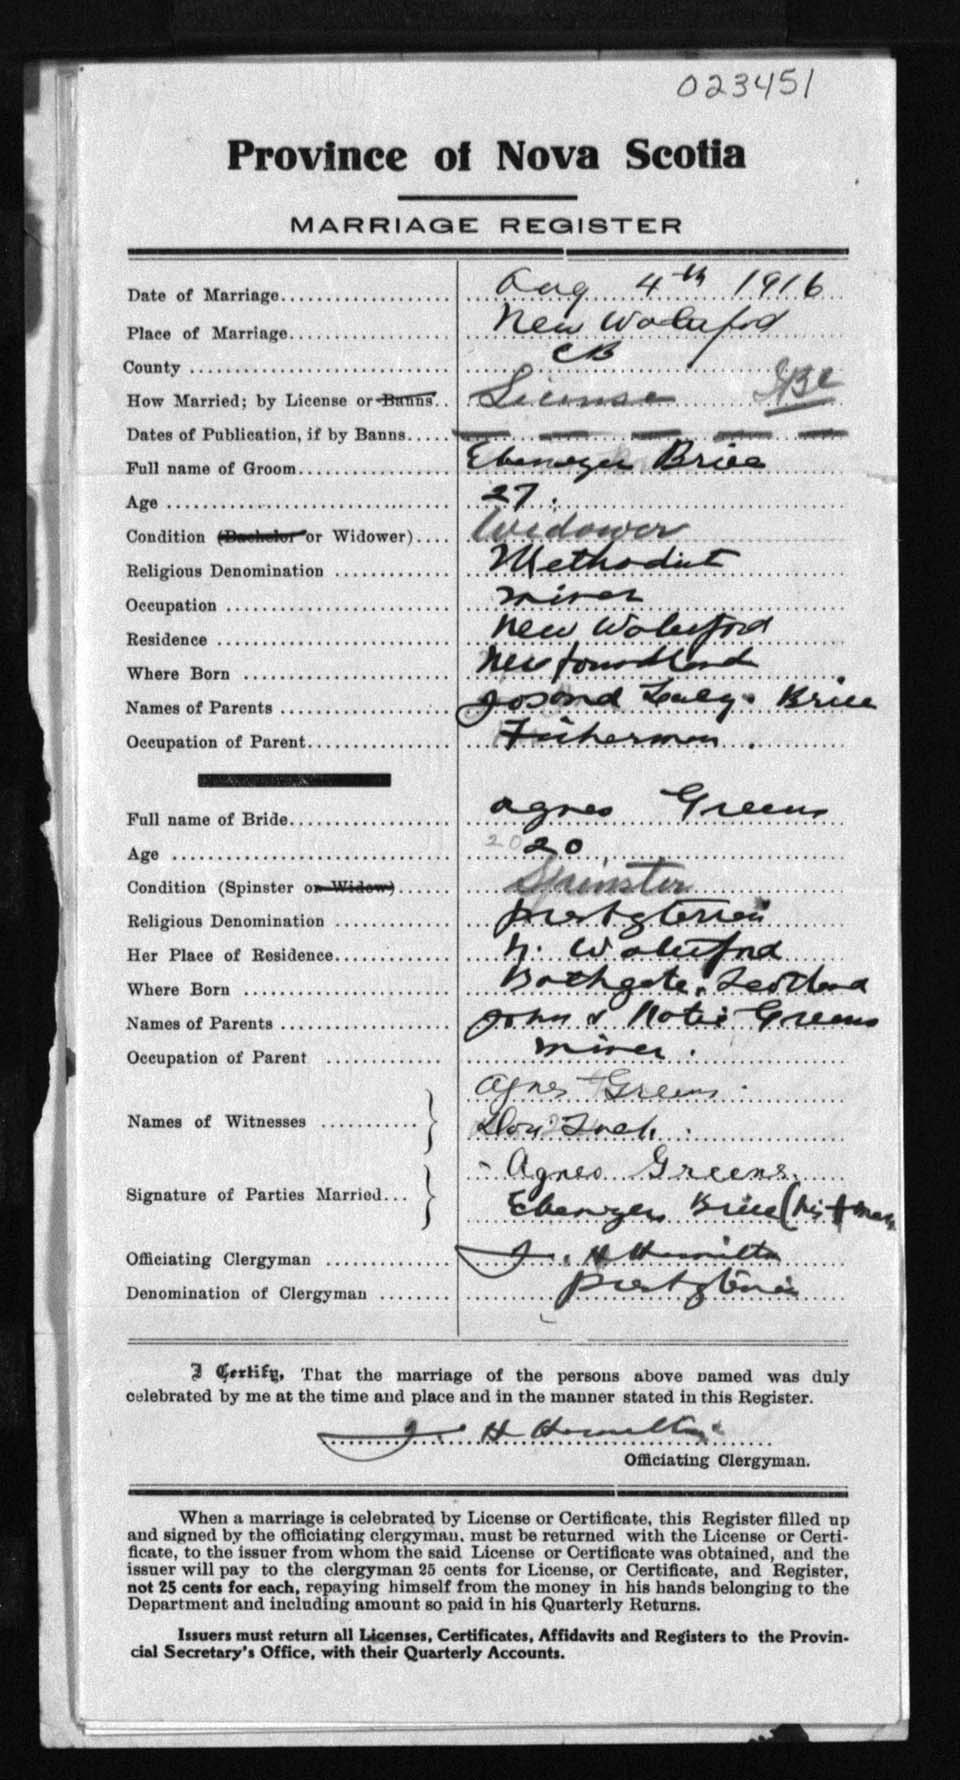 023451
Province of Nova Scotia
MARRIAGE REGISTER
Date of Marriage.................... Aug 4th 1916
Place of Marriage.................... New Waterford
County .................... CB
How Married; by License or Banns.. License
Dates of Publication, if by Banns..... — — — — —
Full name of Groom.................... Ebenezer Brice
Age .................... 27.
Condition (Bachelor or Widower).... Widower
Religious Denomination .................... Methodist
Occupation .................... miner
Residence .................... New Waterford
Where Born .................... Newfoundland
Names of Parents .................... Brice
Occupation of Parent.................... Fisherman.
Full name of Bride.................... Agnes Greens
Age .................... 20 20
Condition (Spinster or Widow)...... Spinster
Religious Denomination .................... presbyterian
Her Place of Residence.................... N. Waterford
Where Born .................... Bathgate, Scotland
Names of Parents .................... John & Katie Greens
Occupation of Parent .................... miner.
Names of Witnesses .................... Agnes Greens.
Signature of Parties Married... Agnes Greens.
Ebenezer Brice (his + mark
Officiating Clergyman .................... J. H Hamilton
Denomination of Clergyman ........ presbyterian
I Certify, That the marriage of the persons above named was duly
celebrated by me at the time and place and in the manner stated in this Register.
J. H Hamilton
Officiating Clergyman.
When a marriage is celebrated by License or Certificate, this Register filled up
and signed by the officiating clergyman, must be returned with the License or Certi-
ficate, to the issuer from whom the said License or Certificate was obtained, and the
issuer will pay to the clergyman 25 cents for License, or Certificate, and Register,
not 25 cents for each, repaying himself from the money in his hands belonging to the
Department and including amount so paid in his Quarterly Returns.
Issuers must return all Licenses, Certificates, Affidavits and Registers to the Provin-
cial Secretary's Office, with their Quarterly Accounts.